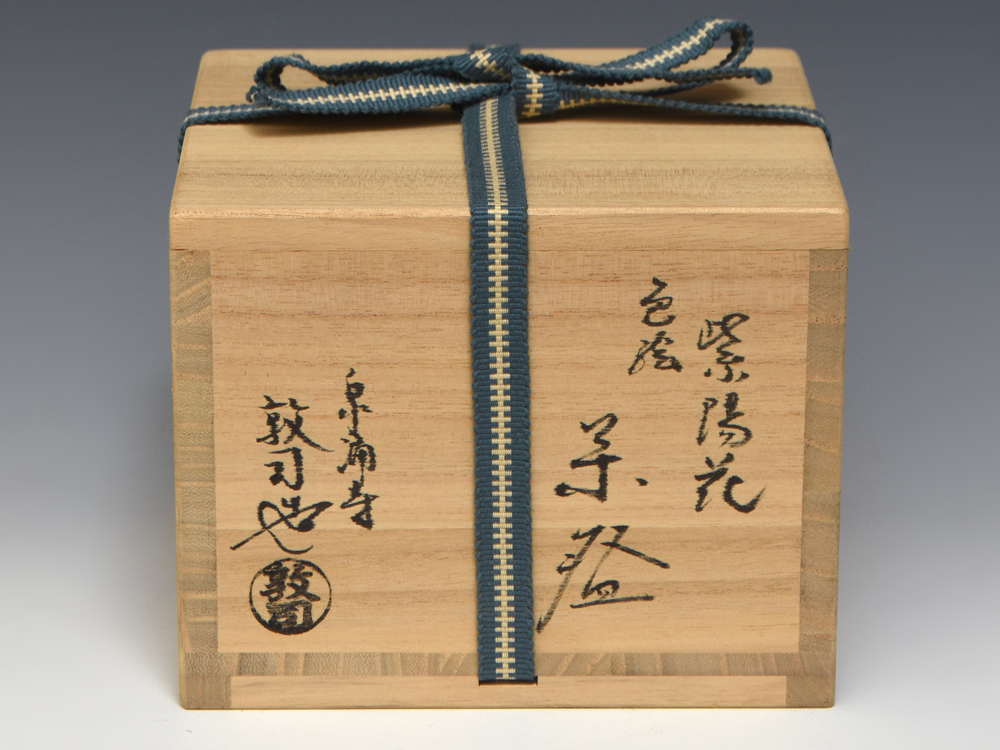 紫陽花
色絵
茶盌
泉涌寺
敦司造
敦司